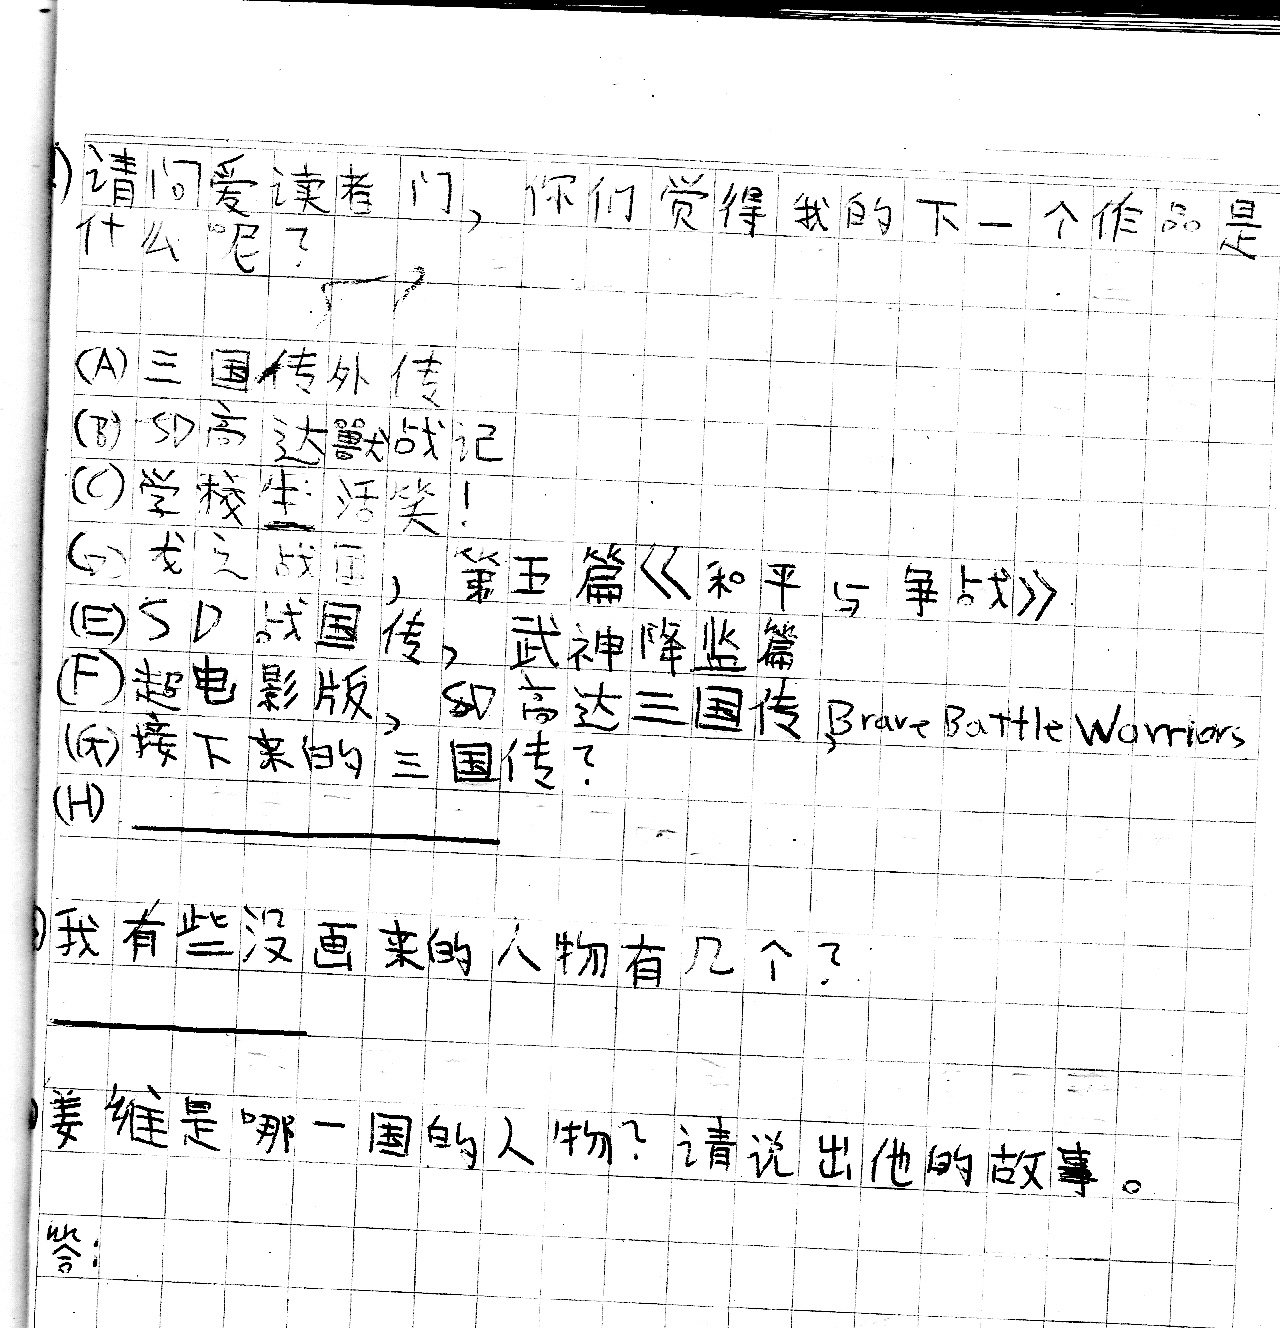 )请问爱读者门，你们觉得我的下一个作品是
什么呢？
(A)三国传外传
(B)SD高达獸战记
(C)学校生活笑！
之战 ，第五篇《和平与争战》
(E)SD战国传，武神降监篇
(F)超电影版，SD高达三国传,Brave Battle Warriors
(G)接下来的三国传？
(H)
我有些没画来的人物有几个？
姜维是哪一国的人物？请说出他的故事。
答：